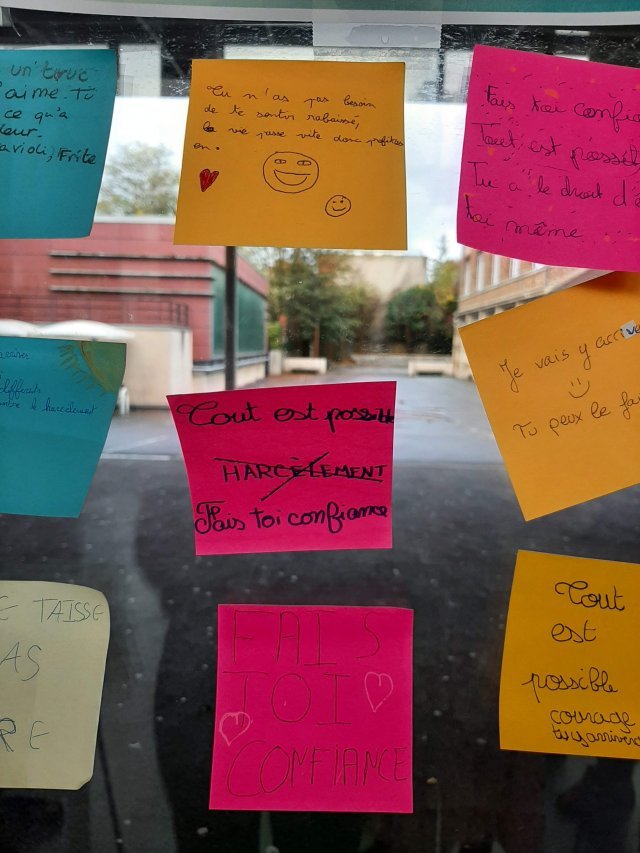 un truc
aime. Tu
ce qu'a
leur.
avioli, Frite
Tu n'as pas besoin
de te sentir rabaissé,
la vie passe vite donc profites
en.
Fais toi confia
Tout est possib
Tu a le droit d'ê
toi même
différents
contre le harcèlement
Tout est possible
HARCÈLEMENT
Fais toi confiance
Je vais y arrive
Tu peux le fai
E TAISSE
AS
RE
FAIS
TOI
CONFIANCE
Tout
est
possible
courage
tu y arrivera